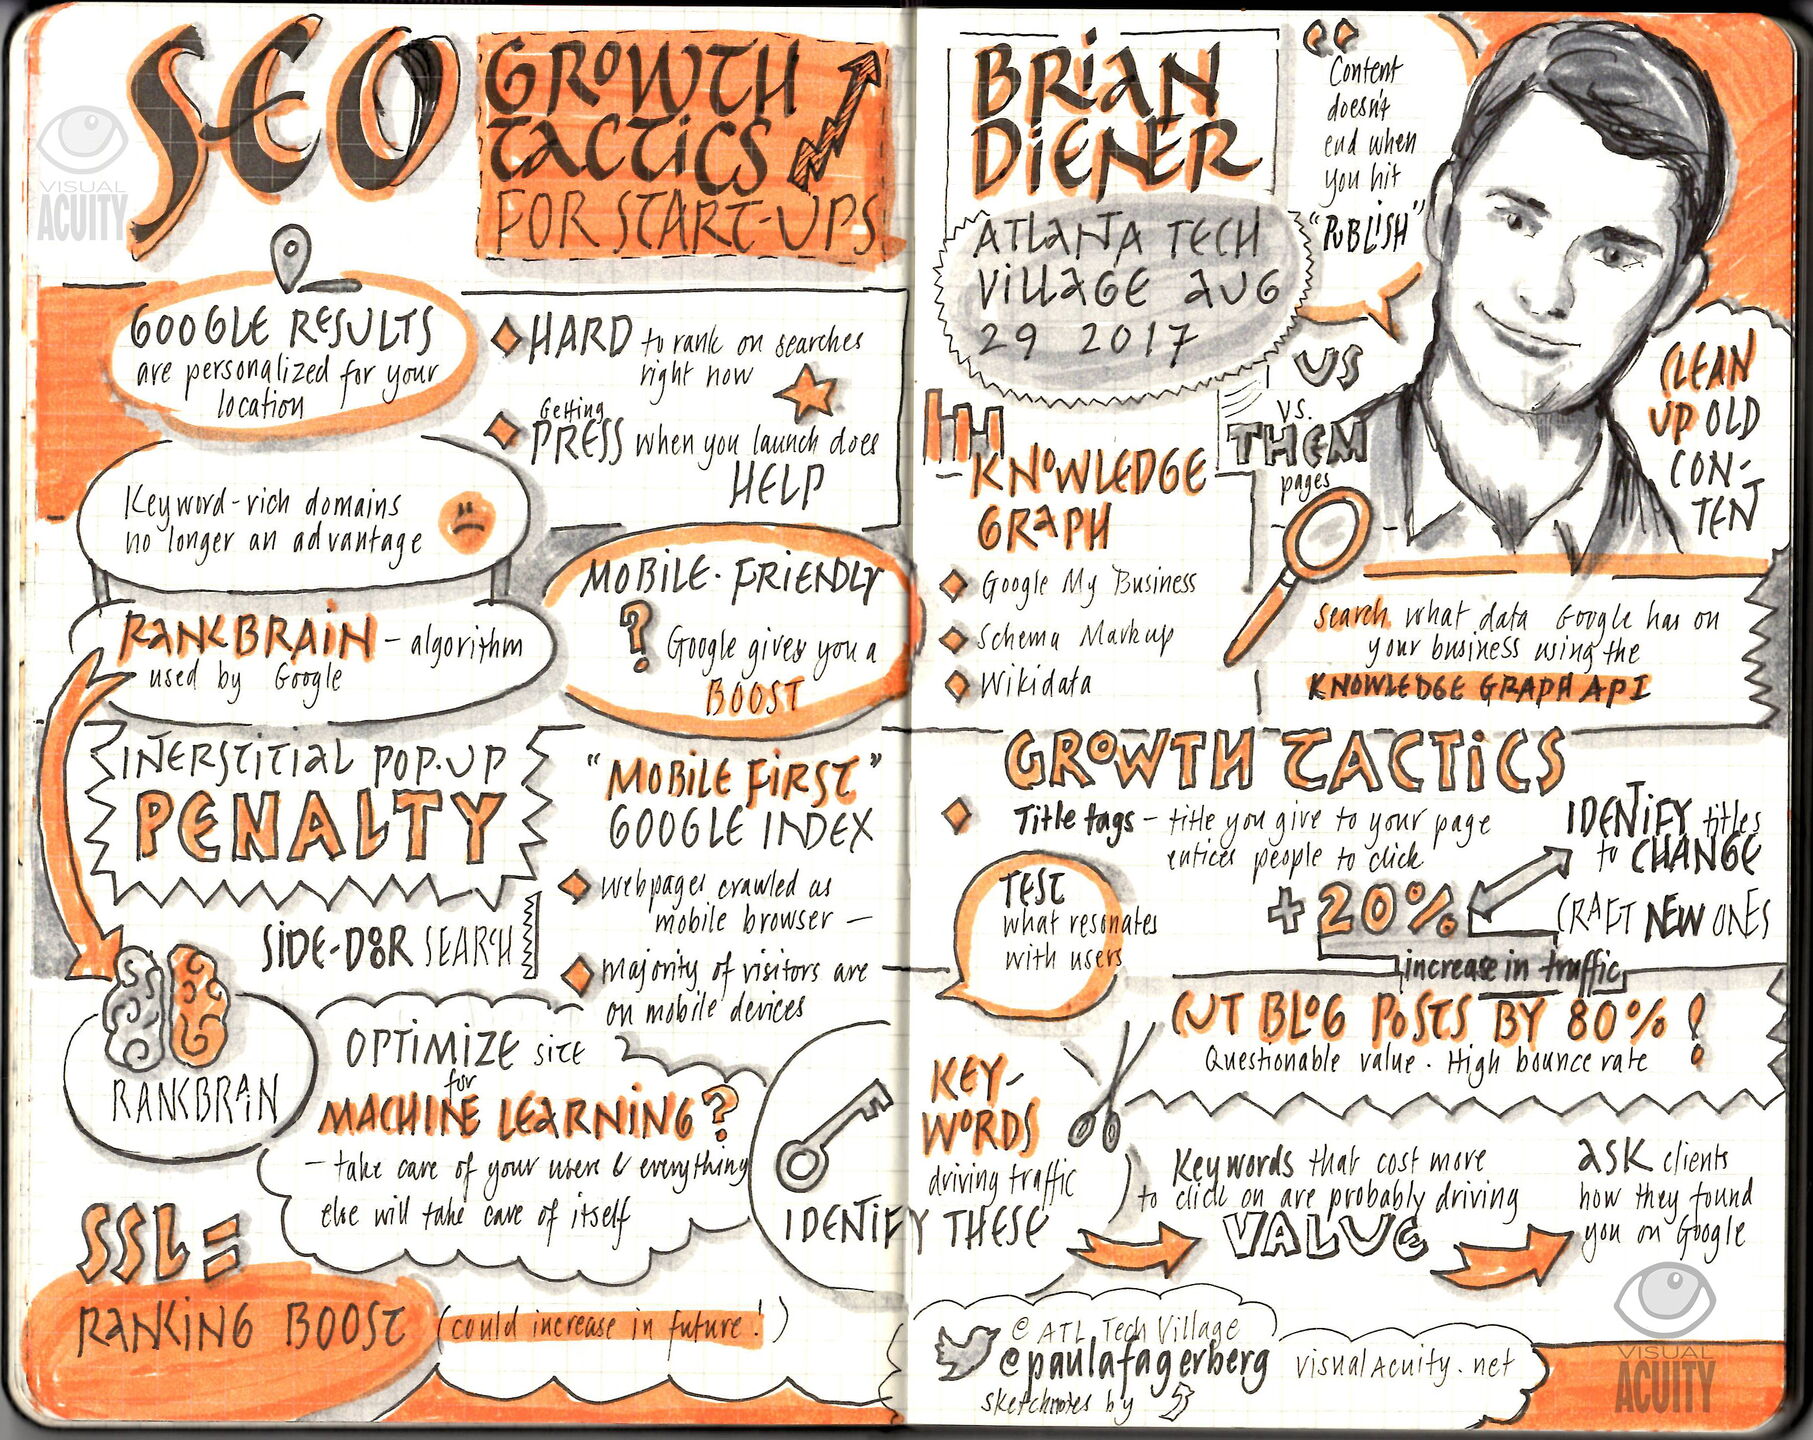 SEO
GROWTH
TACTICS
FOR START-UPS
VISUAL
ACUITY
GOOGLE RESULTS
are personalized for your
location
HARD to rank on searches
right now
Getting
PRESS when you launch does
HELP
Keyword-rich domains
no longer an advantage
RANKBRAIN - algorithm
used by Google
MOBILE-FRIENDLY
? Google gives you a
BOOST
INERSTITIAL POP-UP
PENALTY
SIDE-DOOR SEARCH
"MOBILE FIRST"
GOOGLE INDEX
webpages crawled as
mobile browser -
majority of visitors are
on mobile devices
RANKBRAIN
OPTIMIZE site
for
MACHINE LEARNING?
- take care of your users & everything
else will take care of itself
SSL =
RANKING BOOST (could increase in future!)
BRIAN
DIENER
ATLANTA TECH
VILLAGE AUG
29 2017
"
Content
doesn't
end when
you hit
"PUBLISH"
US
vs.
THEM
pages
CLEAN
UP OLD
CON-
TENT
KNOWLEDGE
GRAPH
Google My Business
Schema Markup
Wikidata
Search what data Google has on
your business using the
KNOWLEDGE GRAPH API
GROWTH TACTICS
Title tags - title you give to your page
entices people to click
IDENTIFY titles
to CHANGE
CRAFT NEW ONES
+20%
increase in traffic
TEST
what resonates
with users
CUT BLOG POSTS BY 80%!
Questionable value. High bounce rate
KEY-
WORDS
driving traffic
IDENTIFY THESE
Keywords that cost more
to click on are probably driving
VALUE
ASK clients
how they found
you on Google
@ ATL Tech Village
@paulafagerberg
sketchnotes by
visualacuity.net
VISUAL
ACUITY